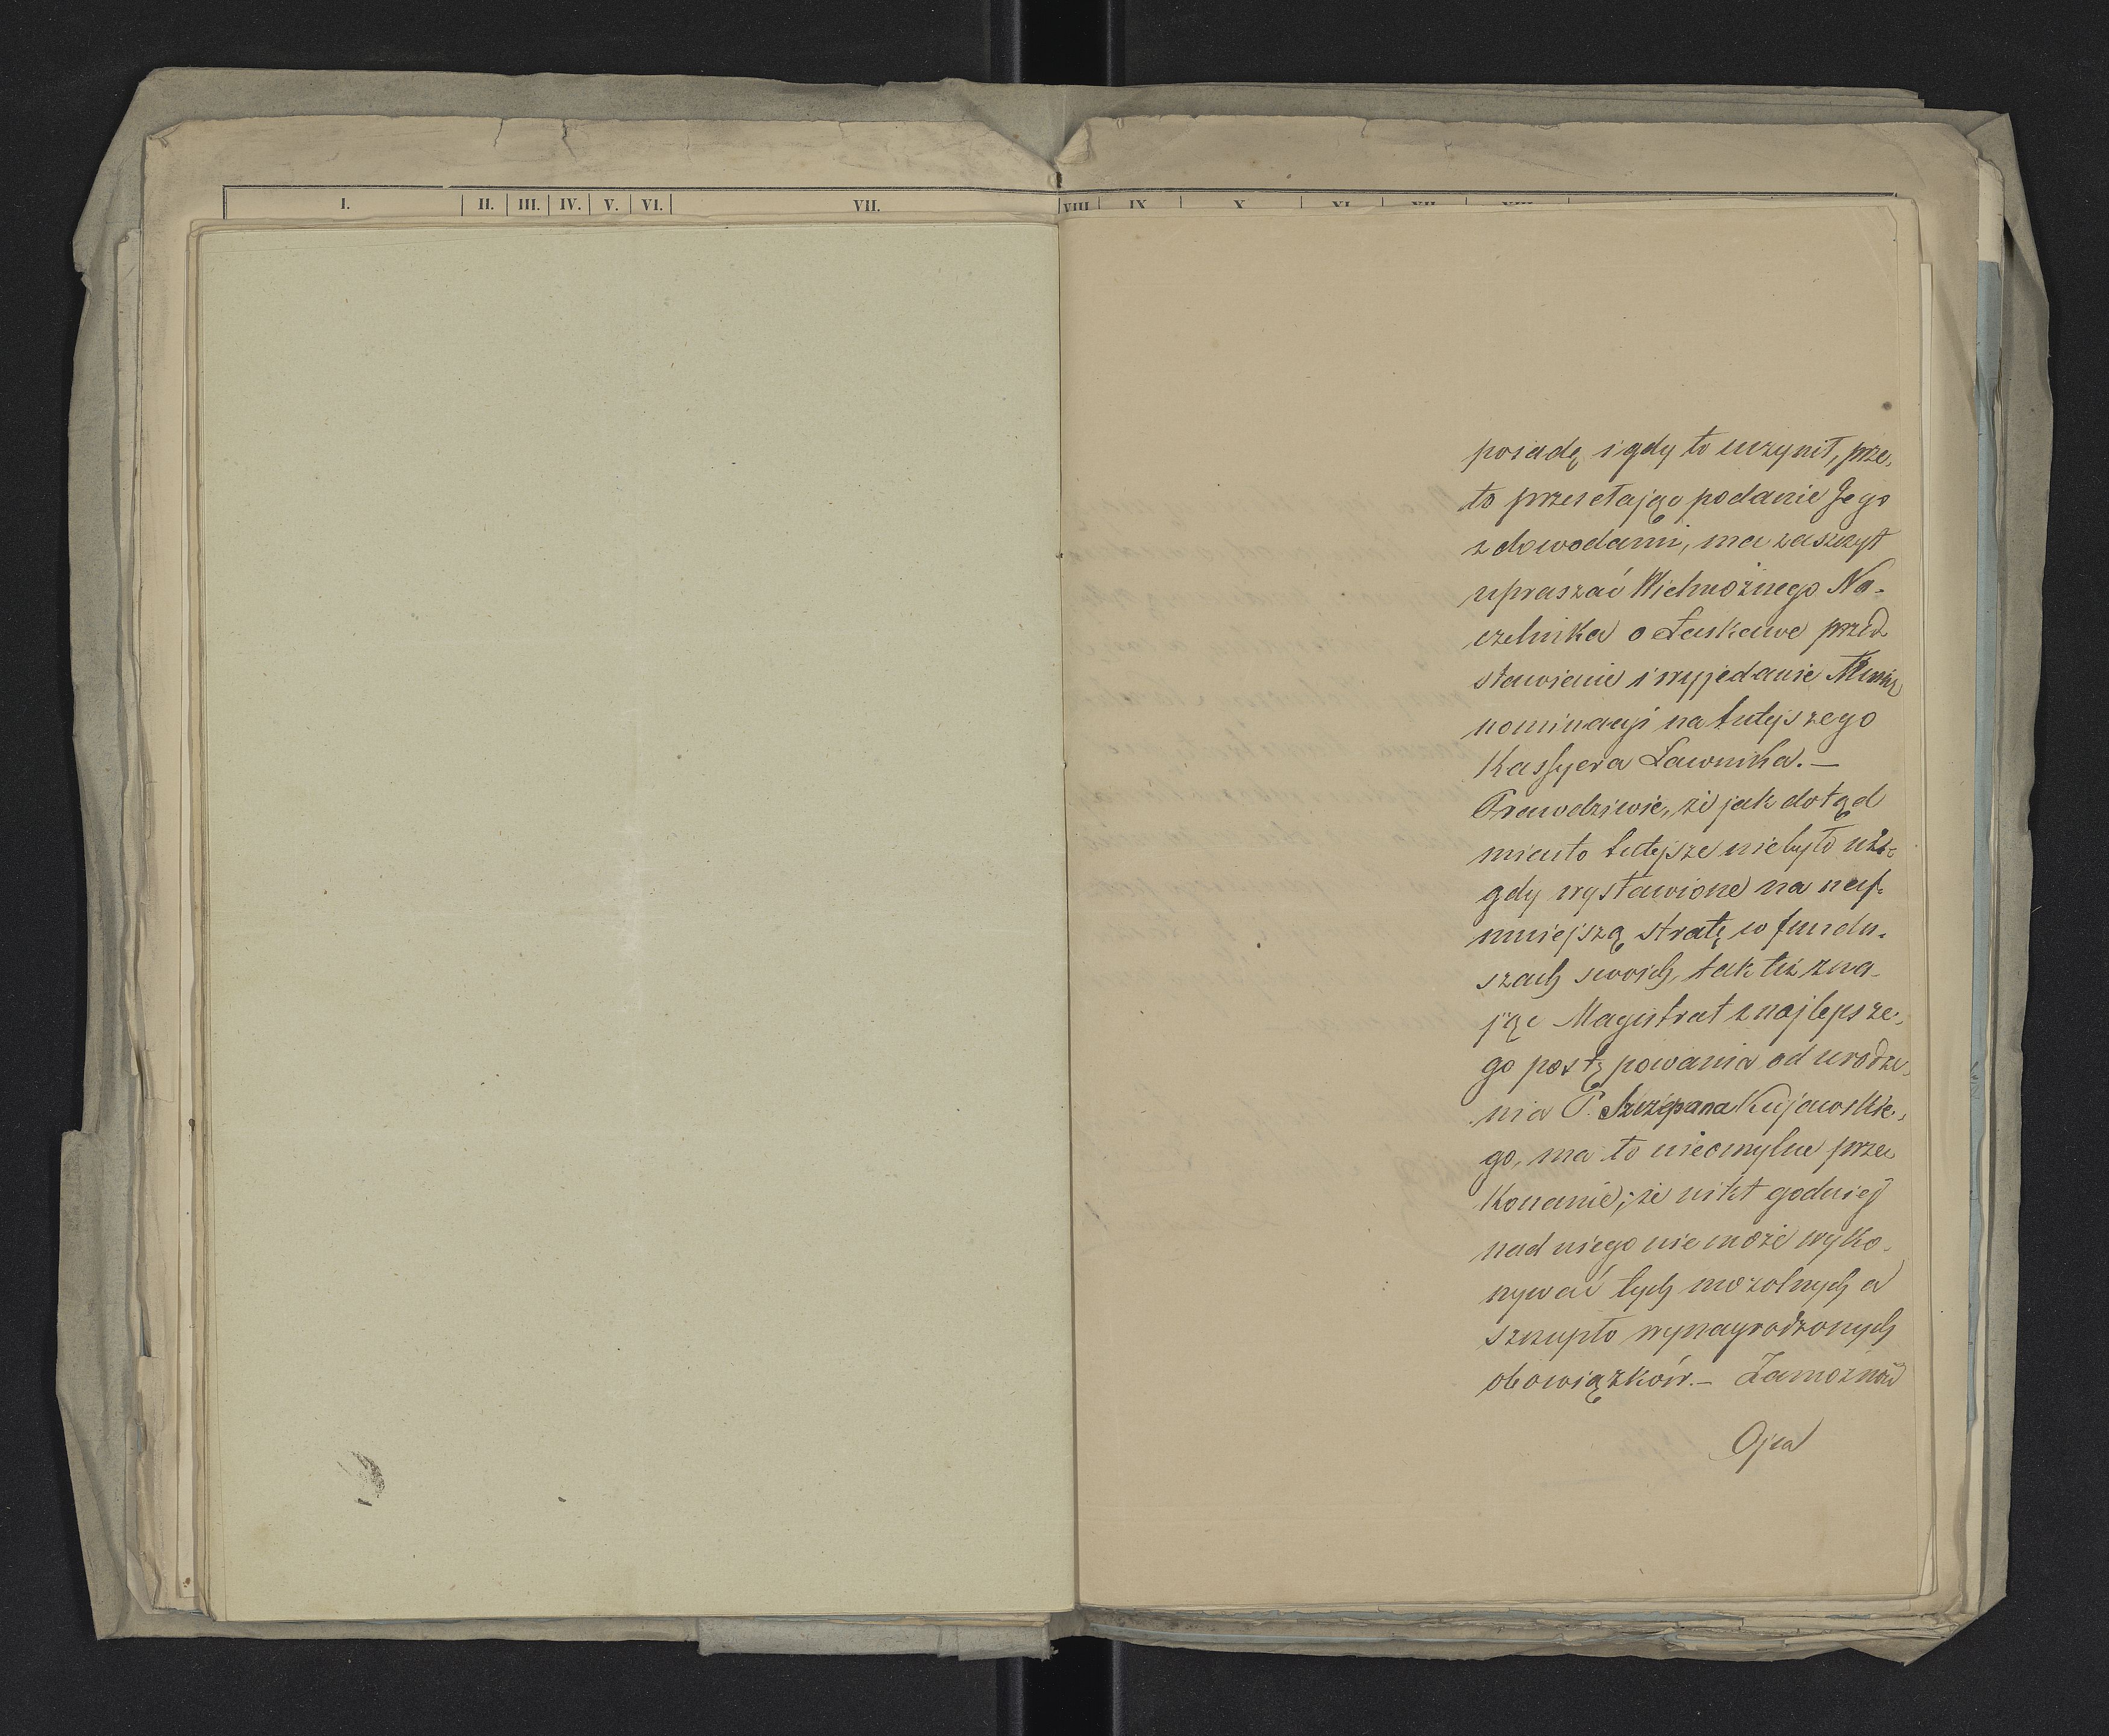 I. II. III. IV. V. VI. VII. VIII IX X XI XII XIII
posadę i gdy to uczynił, prze-
to przesełając podanie Jego
z dowodami, ma zaszczyt
upraszać Wielmożnego Na-
czelnika o Łaskawe przed
stawienie i wyjednanie
nominacyi na tutejszego
Kassyera Ławnika.—
Prawdziwie, że jak dotąd
miasto tutejsze niebyło
gdy wystawione na naj-
mniejszą stratę w fundu-
szach swoich, tak też zna-
jąc Magistrat z najlepsze-
go postępowania od urodze-
nia P. Szczepana Kujawskie-
go, ma to nieomylne prze
konanie, że nikt godniej
nad niego nie może wyko-
nywać tych mozolnych a
szczupło wynagrodzonych
obowiązków.— Zamożność
Ojca